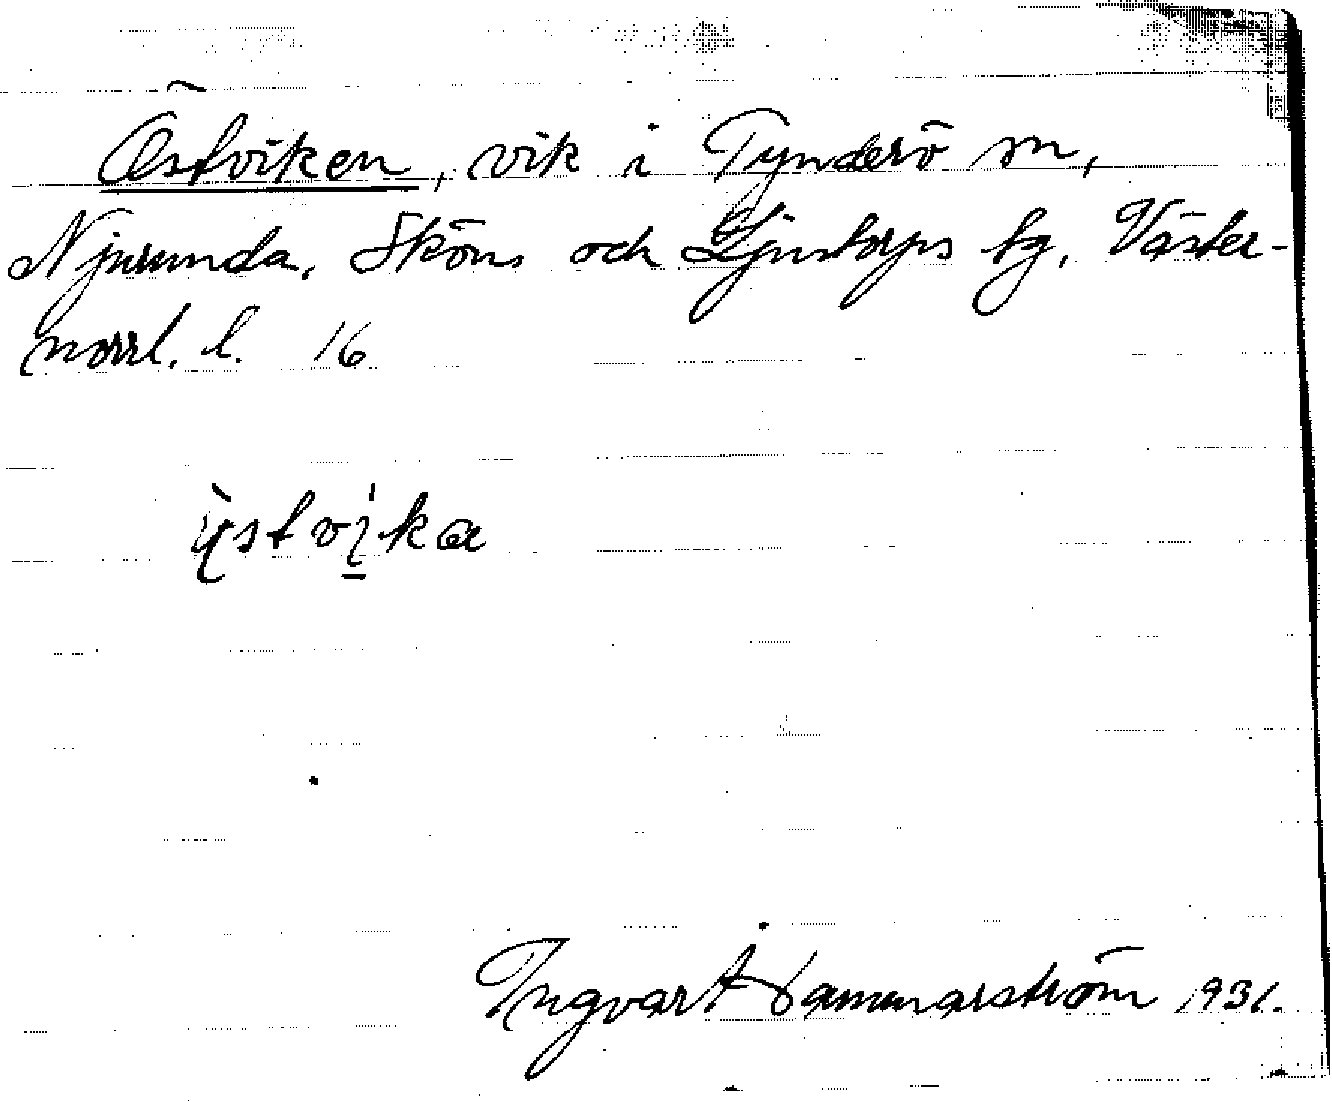 Östviken, vik i Tynderö sn,
Njurunda, Sköns och Ljustorps tg, Väster-
norrl. l. 16
Ingvar Hammarström 1931.